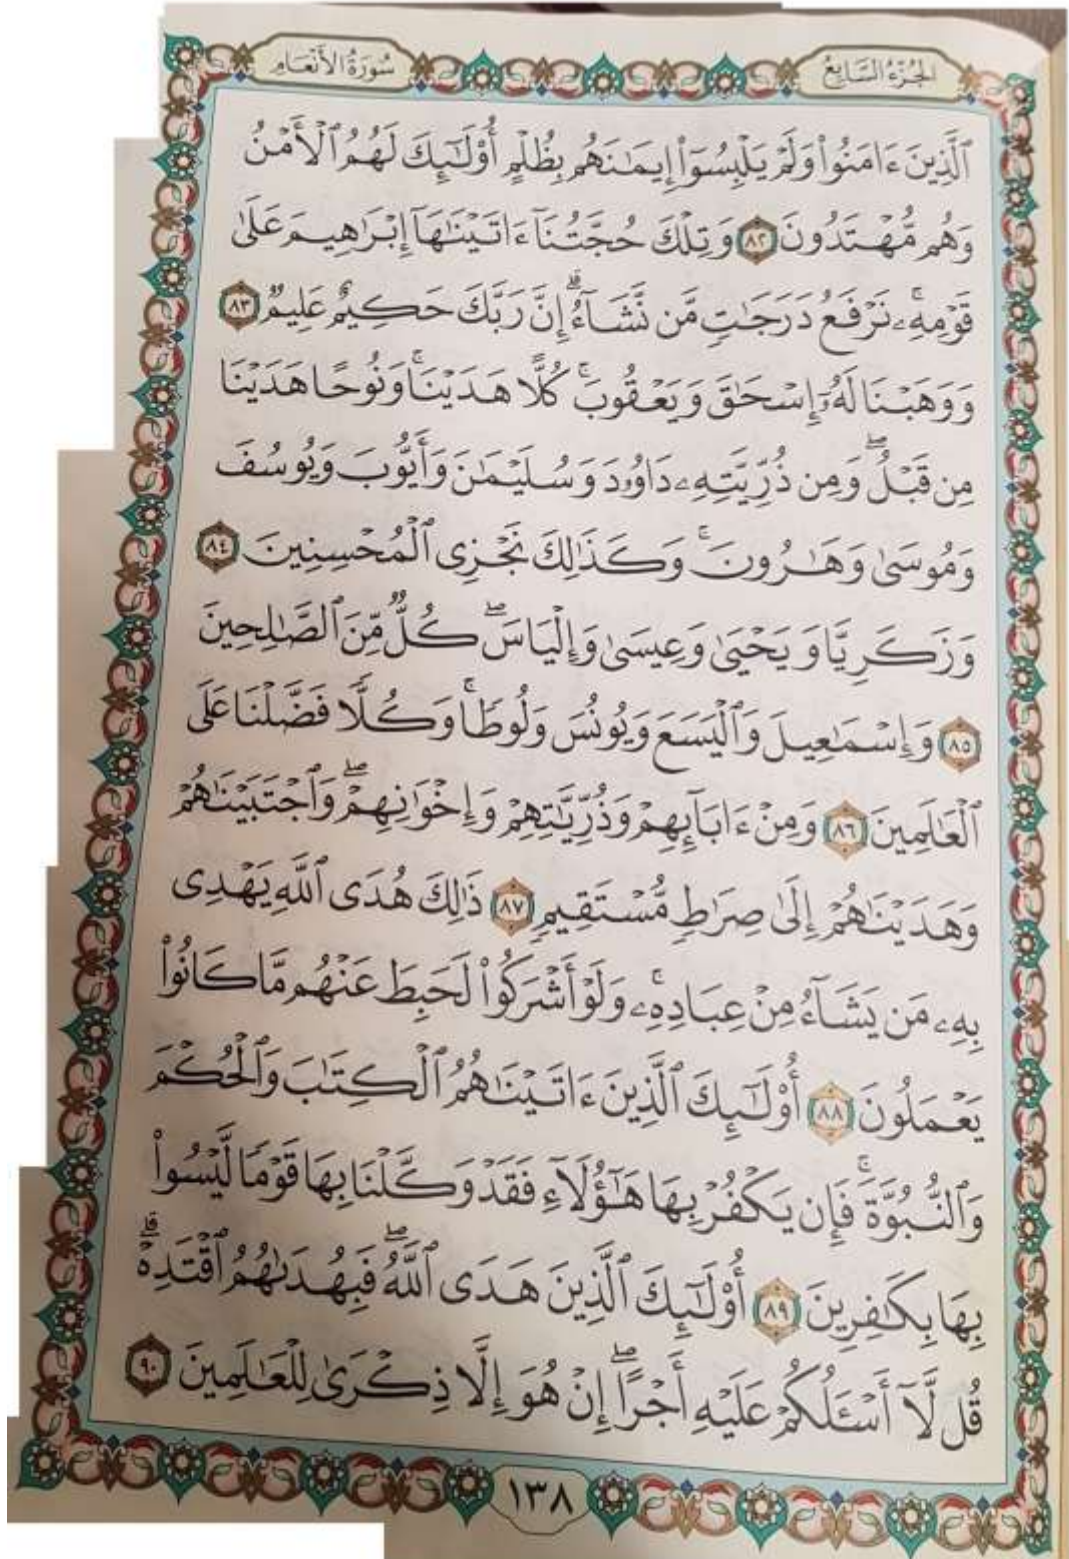 الجُزْءُ السَّابِعُ سُورَةُ الأَنْعَامِ
ٱلَّذِينَ ءَامَنُوا۟ وَلَمْ يَلْبِسُوٓا۟ إِيمَـٰنَهُم بِظُلْمٍ أُو۟لَـٰٓئِكَ لَهُمُ ٱلْأَمْنُ
وَهُم مُّهْتَدُونَ ٨٢ وَتِلْكَ حُجَّتُنَآ ءَاتَيْنَـٰهَآ إِبْرَٰهِيمَ عَلَىٰ
قَوْمِهِۦۚ نَرْفَعُ دَرَجَـٰتٍ مَّن نَّشَآءُۗ إِنَّ رَبَّكَ حَكِيمٌ عَلِيمٌ ٨٣
وَوَهَبْنَا لَهُۥٓ إِسْحَـٰقَ وَيَعْقُوبَۚ كُلًّا هَدَيْنَاۚ وَنُوحًا هَدَيْنَا
مِن قَبْلُۖ وَمِن ذُرِّيَّتِهِۦ دَاوُۥدَ وَسُلَيْمَـٰنَ وَأَيُّوبَ وَيُوسُفَ
وَمُوسَىٰ وَهَـٰرُونَۚ وَكَذَٰلِكَ نَجْزِى ٱلْمُحْسِنِينَ ٨٤
وَزَكَرِيَّا وَيَحْيَىٰ وَعِيسَىٰ وَإِلْيَاسَۖ كُلٌّ مِّنَ ٱلصَّـٰلِحِينَ
٨٥ وَإِسْمَـٰعِيلَ وَٱلْيَسَعَ وَيُونُسَ وَلُوطًاۚ وَكُلًّا فَضَّلْنَا عَلَى
ٱلْعَـٰلَمِينَ ٨٦ وَمِنْ ءَابَآئِهِمْ وَذُرِّيَّـٰتِهِمْ وَإِخْوَٰنِهِمْۖ وَٱجْتَبَيْنَـٰهُمْ
وَهَدَيْنَـٰهُمْ إِلَىٰ صِرَٰطٍ مُّسْتَقِيمٍ ٨٧ ذَٰلِكَ هُدَى ٱللَّهِ يَهْدِى
بِهِۦ مَن يَشَآءُ مِنْ عِبَادِهِۦۚ وَلَوْ أَشْرَكُوا۟ لَحَبِطَ عَنْهُم مَّا كَانُوا۟
يَعْمَلُونَ ٨٨ أُو۟لَـٰٓئِكَ ٱلَّذِينَ ءَاتَيْنَـٰهُمُ ٱلْكِتَـٰبَ وَٱلْحُكْمَ
وَٱلنُّبُوَّةَۚ فَإِن يَكْفُرْ بِهَا هَـٰٓؤُلَآءِ فَقَدْ وَكَّلْنَا بِهَا قَوْمًا لَّيْسُوا۟
بِهَا بِكَـٰفِرِينَ ٨٩ أُو۟لَـٰٓئِكَ ٱلَّذِينَ هَدَى ٱللَّهُۖ فَبِهُدَىٰهُمُ ٱقْتَدِهْۗ
قُل لَّآ أَسْـَٔلُكُمْ عَلَيْهِ أَجْرًاۖ إِنْ هُوَ إِلَّا ذِكْرَىٰ لِلْعَـٰلَمِينَ ٩٠
١٣٨